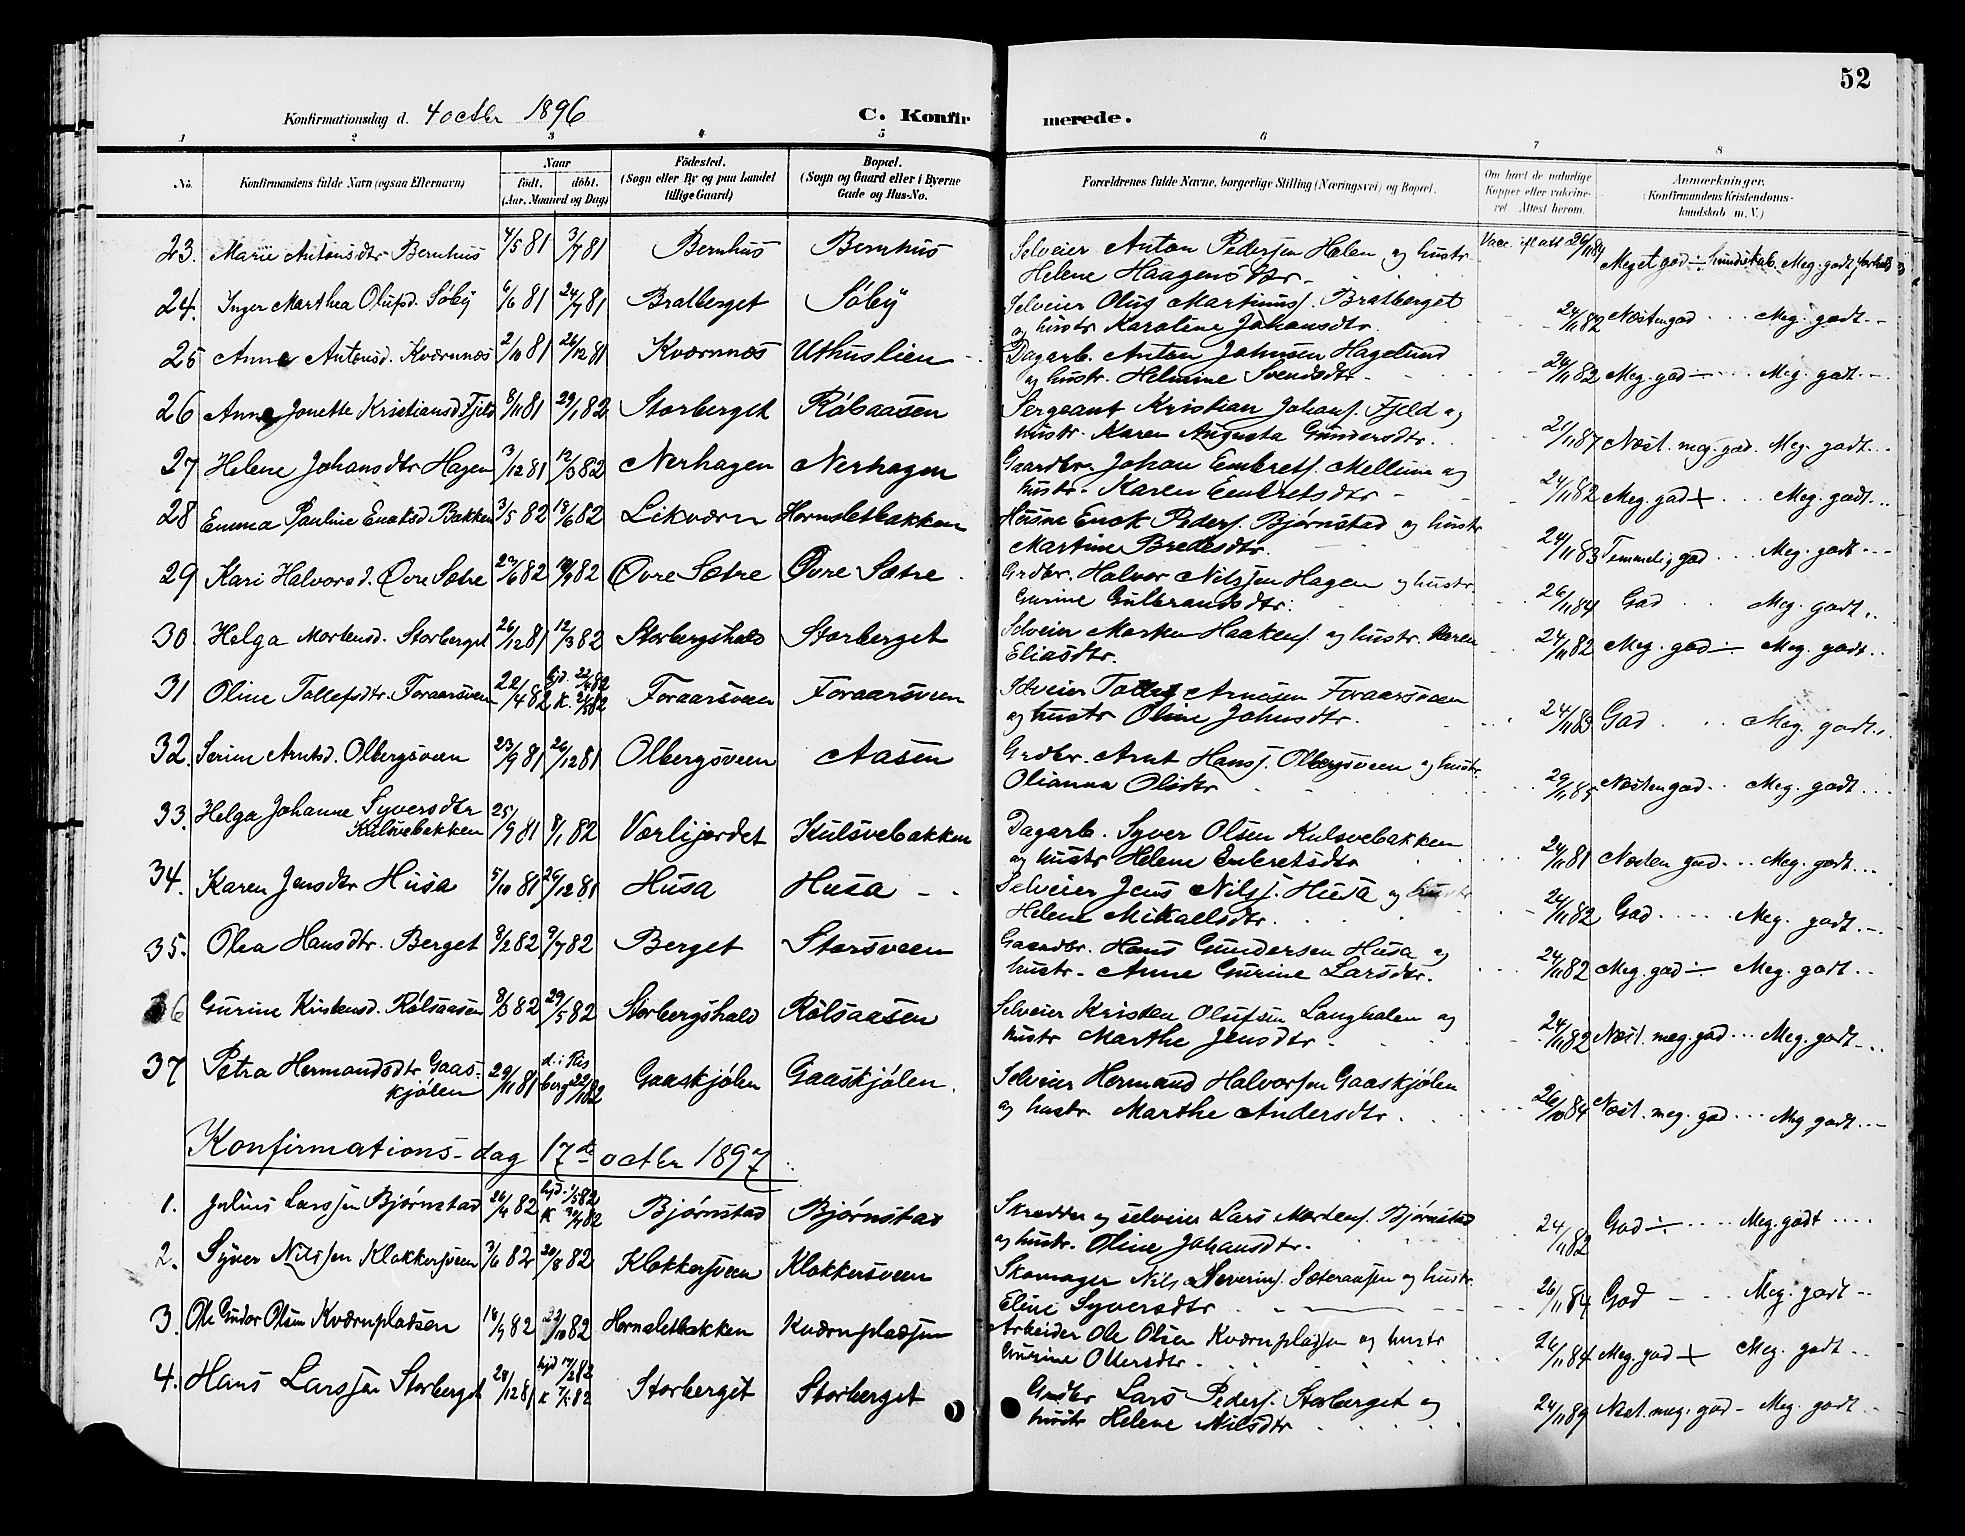 52
Konfirmationsdag d. 4 octbr 1896 C. Konfirmerede.
1 2 3 4 5 6 7 8
No. Konfirmandens fulde Navn (ogsaa Efternavn) Naar født. døbt. (Aar, Maaned og Dag) Fødested. (Sogn eller By og paa Landet tillige Gaard) Bopæl. (Sogn og Gaard eller i Byerne Gade og Hus-No. Forældrenes fulde Navne, borgerlige Stilling (Næringsvei) og Bopæl. Om havt de naturlige Kopper eller vakcineret. Attest herom. Anmærkninger. (Konfirmandens Kristendomskundskab m. V.)
23. Marie Antonsdtr Bernhus 4/5 81 3/7 81 Bernhus Bernhus Selveier Anton Pedersen Halen og hustr. Vacc. ifl att 26/11 84 Meget god ÷ kundskab. Meg. godt forhold
Helene Haagensdtr.
24. Inger Marthea Olufsd. Søby 6/6 81 24/7 81 Bratberget Søby Selveier Oluf Martinius. Bratberget 24/11 82 Næsten god Meg. godt.
og hustr Karoline Johansdtr.
25 Anne Antonsd. Kværnnæs 2/10 81 26/12 81 Kværnnæs Uthuslien Dagarb. Anton Johnsen Hagelund 24/11 82 Meg. god ÷ Meg. godt.
og hustr. Helmine Svendsdtr.
26 Anne Jonette Kristiansd Fjeld 8/11 81 29/1 82 Storberget Røbaasen Sergeant Kristian Johans. Fjeld og 21/11 87 Næst. meg. god. Meg. godt.
hustr. Karen Augusta Gundersdtr.
27 Helene Johansdtr Hagen 3/12 81 12/3 82 Nerhagen Nerhagen Gaardbr. Johan Embrets. Mellum og 24/11 82 Meg. god + Meg. godt.
hustr. Karen Embretsdtr
28 Emma Pauline Enoksd Bakken 3/5 82 18/6 82 Likværn Hornsletbakken Husm Enok Peders. Bjørnstad og hustr 24/11 83 Temmelig god Meg. godt
Martine Bredesdtr.
29 Kari Halvorsd. Øvre Sætre 27/6 82 82 Øvre Sætre Øvre Sætre Grdbr. Halvor Nilssen Hagen og hustr. 26/11 84 God Meg. godt.
Gurine Gulbrandsdtr.
30 Helga Mortensd. Storberget 26/12 81 12/3 82 Storbergshald Storberget Selveier Morten Haakens. og hustr. Karen 24/11 82 Meg. god ÷ Meg. godt.
Eliasdtr.
31 Oline Tollefsdtr. Foraarsveen 22/4 82 hjd. 22/4 82 K. 21/5 82 Foraarsveen Foraarsveen Selveier Tollef Arnesen Foraarsveen 24/11 83 God Meg. godt.
og hustr Oline Johnsdtr.
32. Serine Arntsd. Olbergsveen 23/9 81 26/12 81 Olbergsveen Aasen Grdbr. Arnt Hanss. Olbergsveen og hustr. 29/11 85 Næsten god Meg. godt.
Olianna Olsdtr
33. Helga Johanne Syversdtr 25/9 81 8/1 82 Værlijordet Kulsvebakken Dagarb. Syver Olsen Kulsvebakken 24/11 81 Næsten god Meg. godt.
Kulsvebakken og hustr Helene Embretsdtr
34. Karen Jensdtr Husa 5/10 81 26/12 81 Husa Husa Selveier Jens Nilss. Husa og hustr 24/11 82 God Meg. godt.
Helene Mikaelsdtr.
35. Olea Hansdtr. Berget 8/2 82 9/7 82 Berget Storsveen Gaardbr. Hans Gundersen Husa og 24/11 82 Meg. god ÷ Meg. godt
hustr. Anne Gurine Larsdtr.
36 Gurine Kristensd. Rølsaasen 8/3 82 29/5 82 Storbergshald Rølsaasen Selveier Kristen Olufsen Langhalen og 24/11 82 Næst. meg. god Meg. godt.
hustr Marthe Jensdtr.
37 Petra Hermandsdtr Gaas- 29/11 81 d. i Risberg 22/1 82 Gaaskjølen Gaaskjølen. Selveier Hermand Halvorsen Gaaskjølen 26/10 84 Næst. meg. god Meg godt.
kjølen og hustr. Marthe Andersdtr.
Konfirmations-dag 17de octbr 1897
1. Julius Larssen Bjørnstad 26/4 82 hjd. 1/5 82 K 82 Bjørnstad Bjørnstad Skrædder og selveier Lars Mortens. Bjørnstad 24/11 82 God ÷ Meg. godt
og hustr. Oline Johansdtr.
2. Syver Nilssen Klokkersveen 3/6 82 20/8 82 Klokkersveen Klokkersveen Skomager Nils Severins. Sæteraasen og hustr. 26/11 84 God Meg. godt
Eline Syversdtr
3. Ole Gudor Olsen Kværnpladsen 14/9 82 22/10 82 Hornsletbakken Kværnpladsen Arbeider Ole Olsen Kværnpladsen og hustr 26/11 84 Meg. god + Meg. godt
Gurine Ottersdtr.
4. Hans Larssen Storberget 24/12 81 hjd 82 K 82 Storberget Storberget Grdbr Lars Peders. Storberget og 24/11 89 Næst. meg. god Meg. godt
hustr Helene Nilsdtr